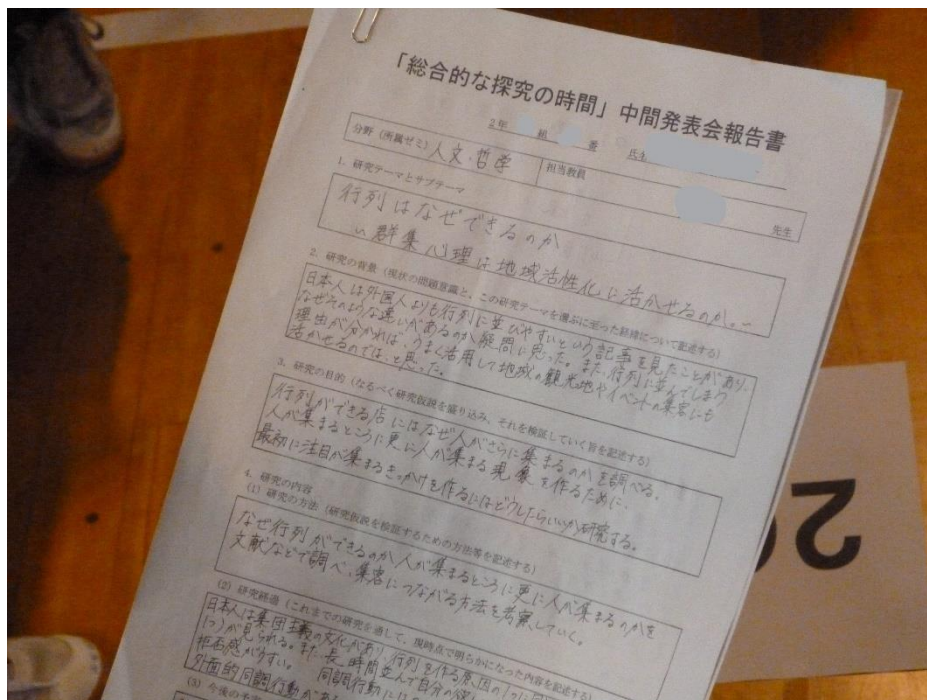 「総合的な探究の時間」中間発表会報告書
2年 組 番 氏名
分野（所属ゼミ） 人文・哲学 担当教員 先生
1．研究テーマとサブテーマ
行列はなぜできるのか
〜群集心理は地域活性化に活かせるのか。〜
2．研究の背景（現状の問題意識と、この研究テーマを選ぶに至った経緯について記述する）
日本人は外国人よりも行列に並びやすいという記事を見たことがあり、
なぜそのような違いがあるのか疑問に思った。また、行列に並んでしまう
理由が分かれば、うまく活用して地域の観光地やイベントの集客にも
活かせるのでは、と思った。
3．研究の目的（なるべく研究仮説を盛り込み、それを検証していく旨を記述する）
行列ができる店にはなぜ人がさらに集まるのかを調べる。
人が集まるところに更に人が集まる現象を作るために、
最初に注目が集まるきっかけを作るにはどうしたらいいか研究する。
4．研究の内容
(1) 研究の方法（研究仮説を検証するための方法等を記述する）
なぜ行列ができるのか、人が集まるところに更に人が集まるのかを
文献などで調べ、集客につながる方法を考察していく。
(2) 研究経過（これまでの研究を通して、現時点で明らかになった内容を記述する）
日本人は集団主義の文化があり、行列を作る原因の1つに同
つ)が見られる。また、長時間並んで自分の欲
拒否感がうすい。 同調行動には
外面的同調行動があ
(3) 今後の予定
20